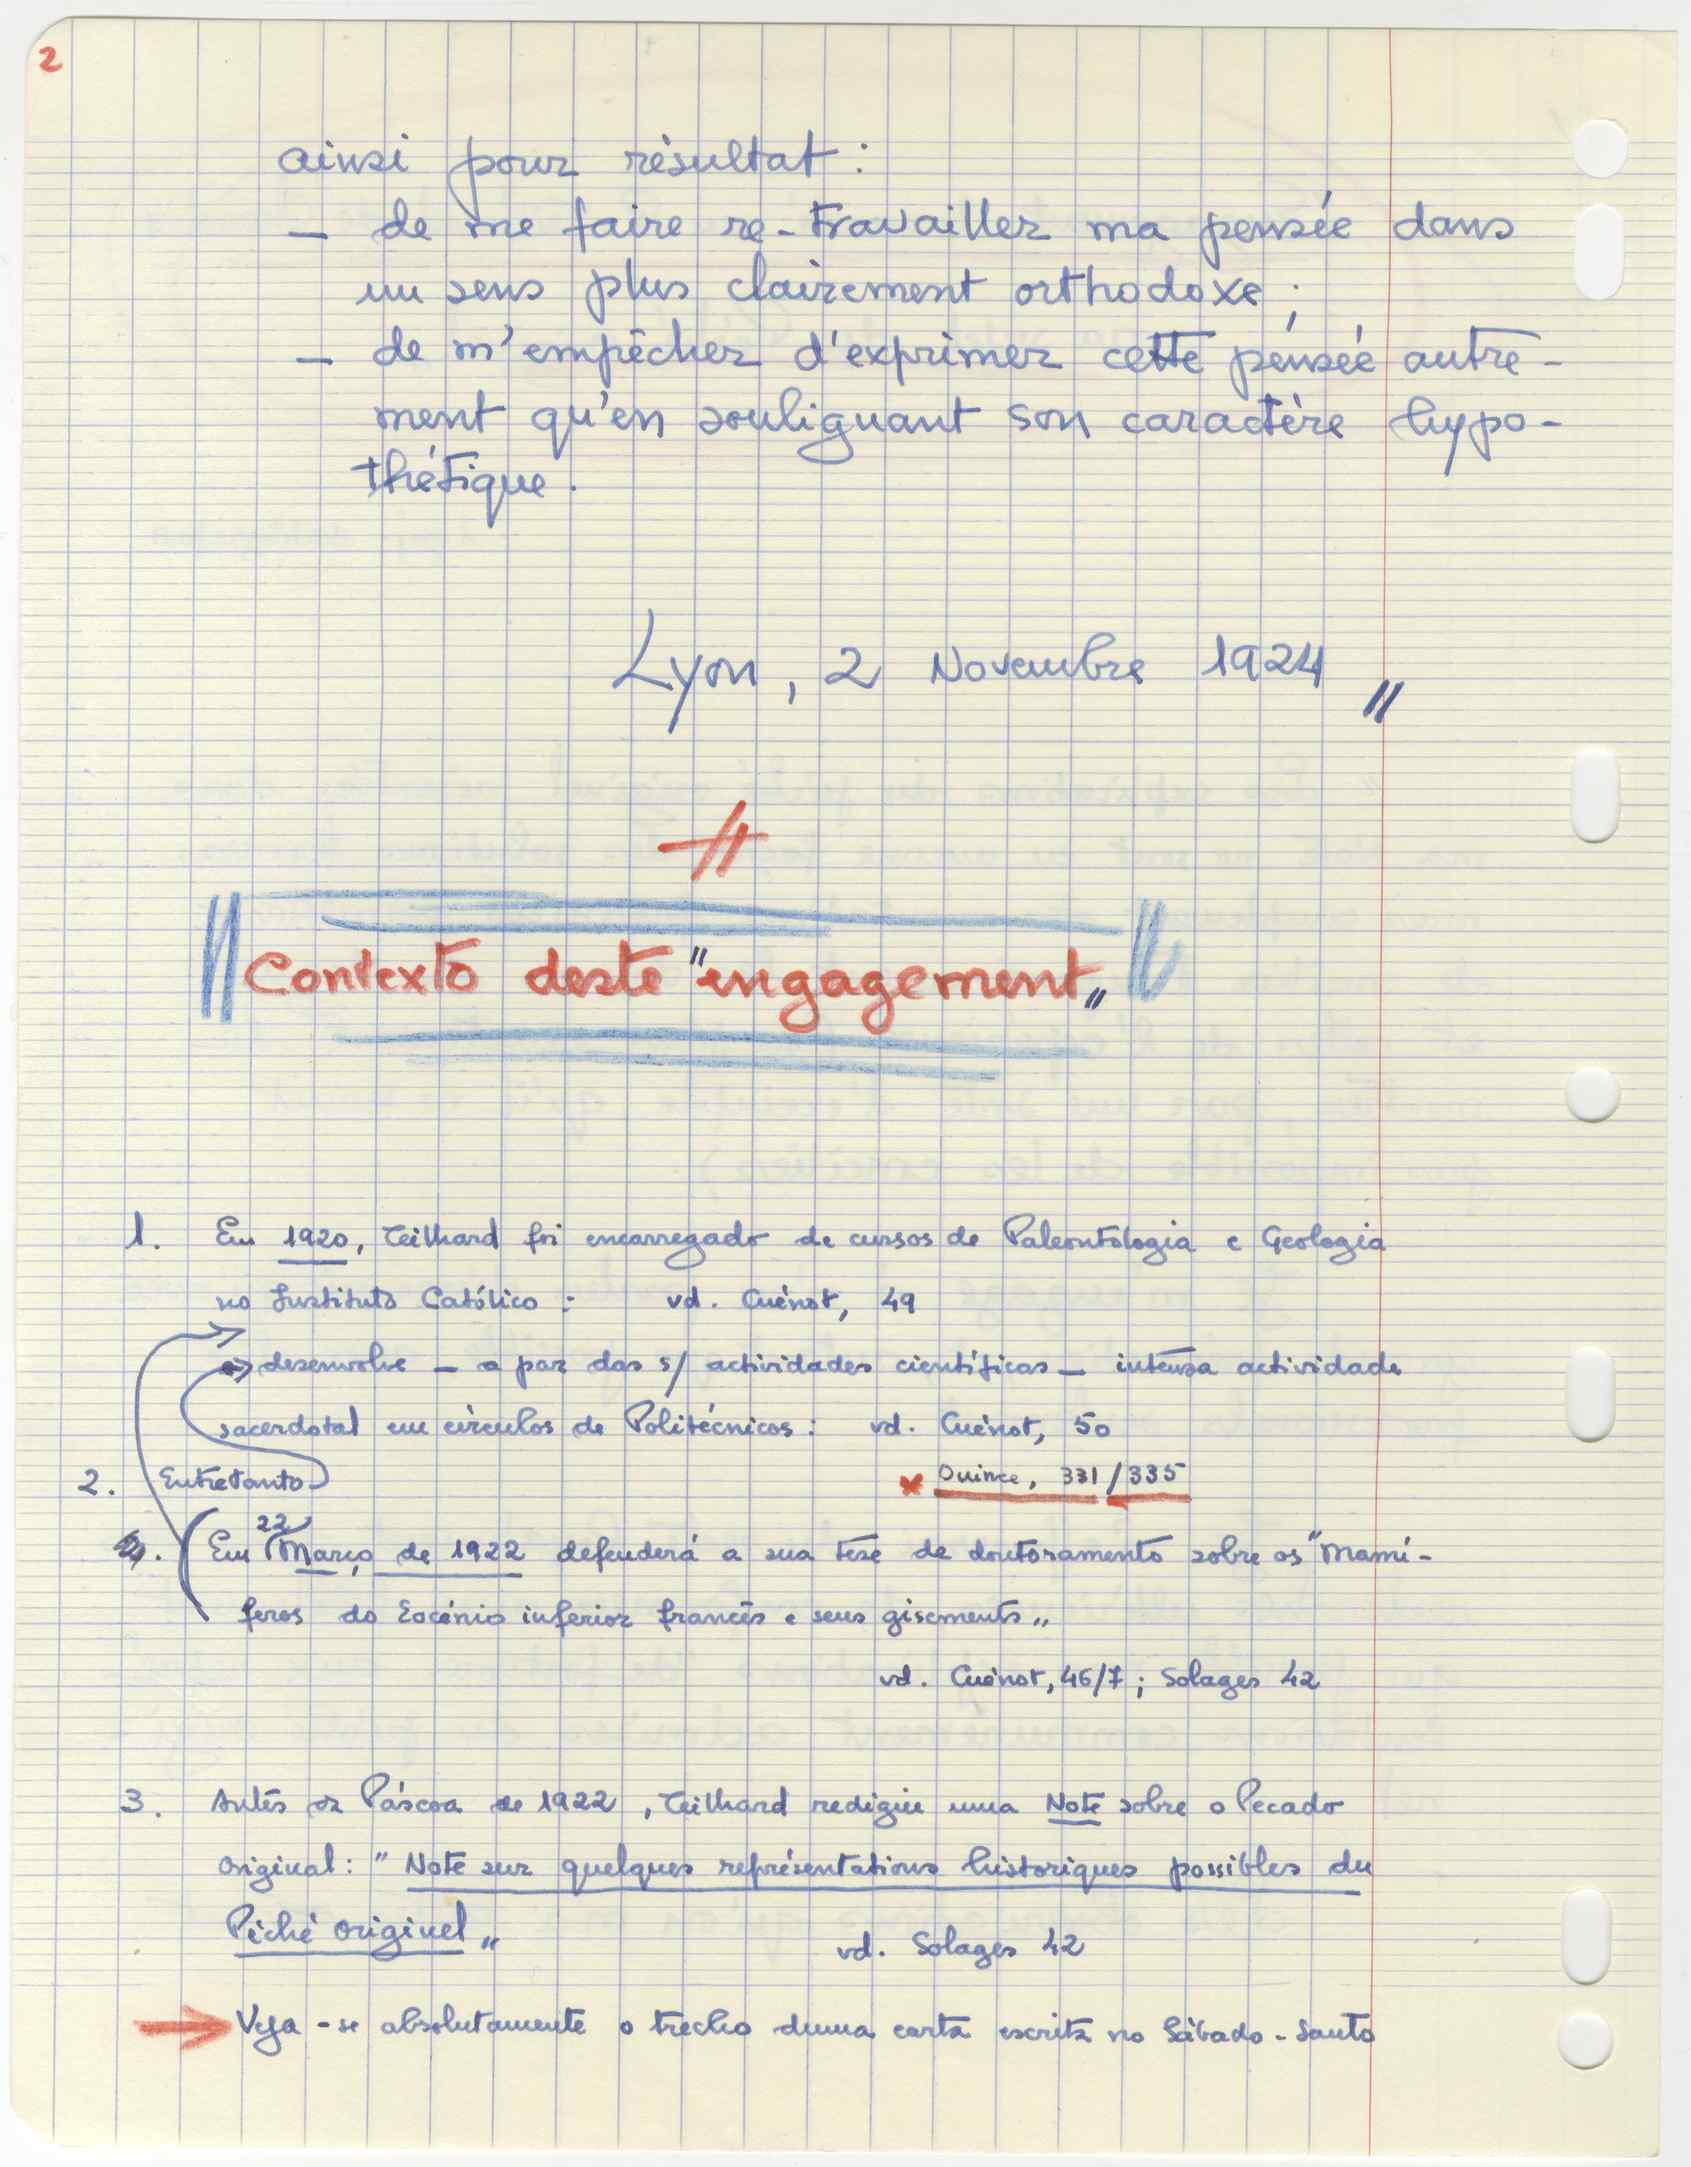 2
ainsi pour résultat :
— de me faire re-travailler ma pensée dans
un sens plus clairement orthodoxe ;
— de m'empêcher d'exprimer cette pensée autre-
ment qu'en soulignant son caractère hypo-
thétique.
Lyon, 2 Novembre 1924 "
Contexto deste "engagement"
1. Em 1920, Teilhard foi encarregado de cursos de Paleontologia e Geologia
no Instituto Católico : vd. Cuénot, 49
desenvolve — a par das s/ actividades científicas — intensa actividade
sacerdotal em círculos de Politécnicos : vd. Cuénot, 50
2. Entretanto
* Ouince, 331/335
22
Em Março de 1922 defenderá a sua tese de doutoramento sobre os "Mamí-
feros do Eocénio inferior francês e seus gisements"
vd. Cuénot, 46/7 ; Solages 42
3. Antes da Páscoa de 1922, Teilhard redigiu uma Note sobre o Pecado
Original : "Note sur quelques représentations historiques possibles du
Péché originel" vd. Solages 42
→ Veja-se absolutamente o trecho duma carta escrita no Sábado-Santo